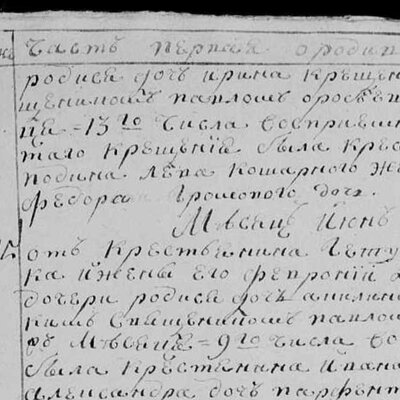 часть первая о родив
родися дочь ирина крещен
щенником павлом оросвец
це = 13 го числа восприемн
таго крещения была крес
подина лева кошарного же
федора громового дочь
Мѣсяц Июнь
отъ крестьянина
ка и жены его февронии
дочери родися дочь акилина
кимъ священником павлом
въ мѣсяце = 9 го числа во
была крестьянина ивана
александра дочь парфен